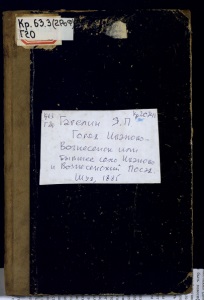 Кр. 63.3(2Р-4
Г20
Гарелин Я.П
Город Иваново-
Вознесенск или
бывшее село Иваново
и Вознесенский Посад.
Шуя, 188